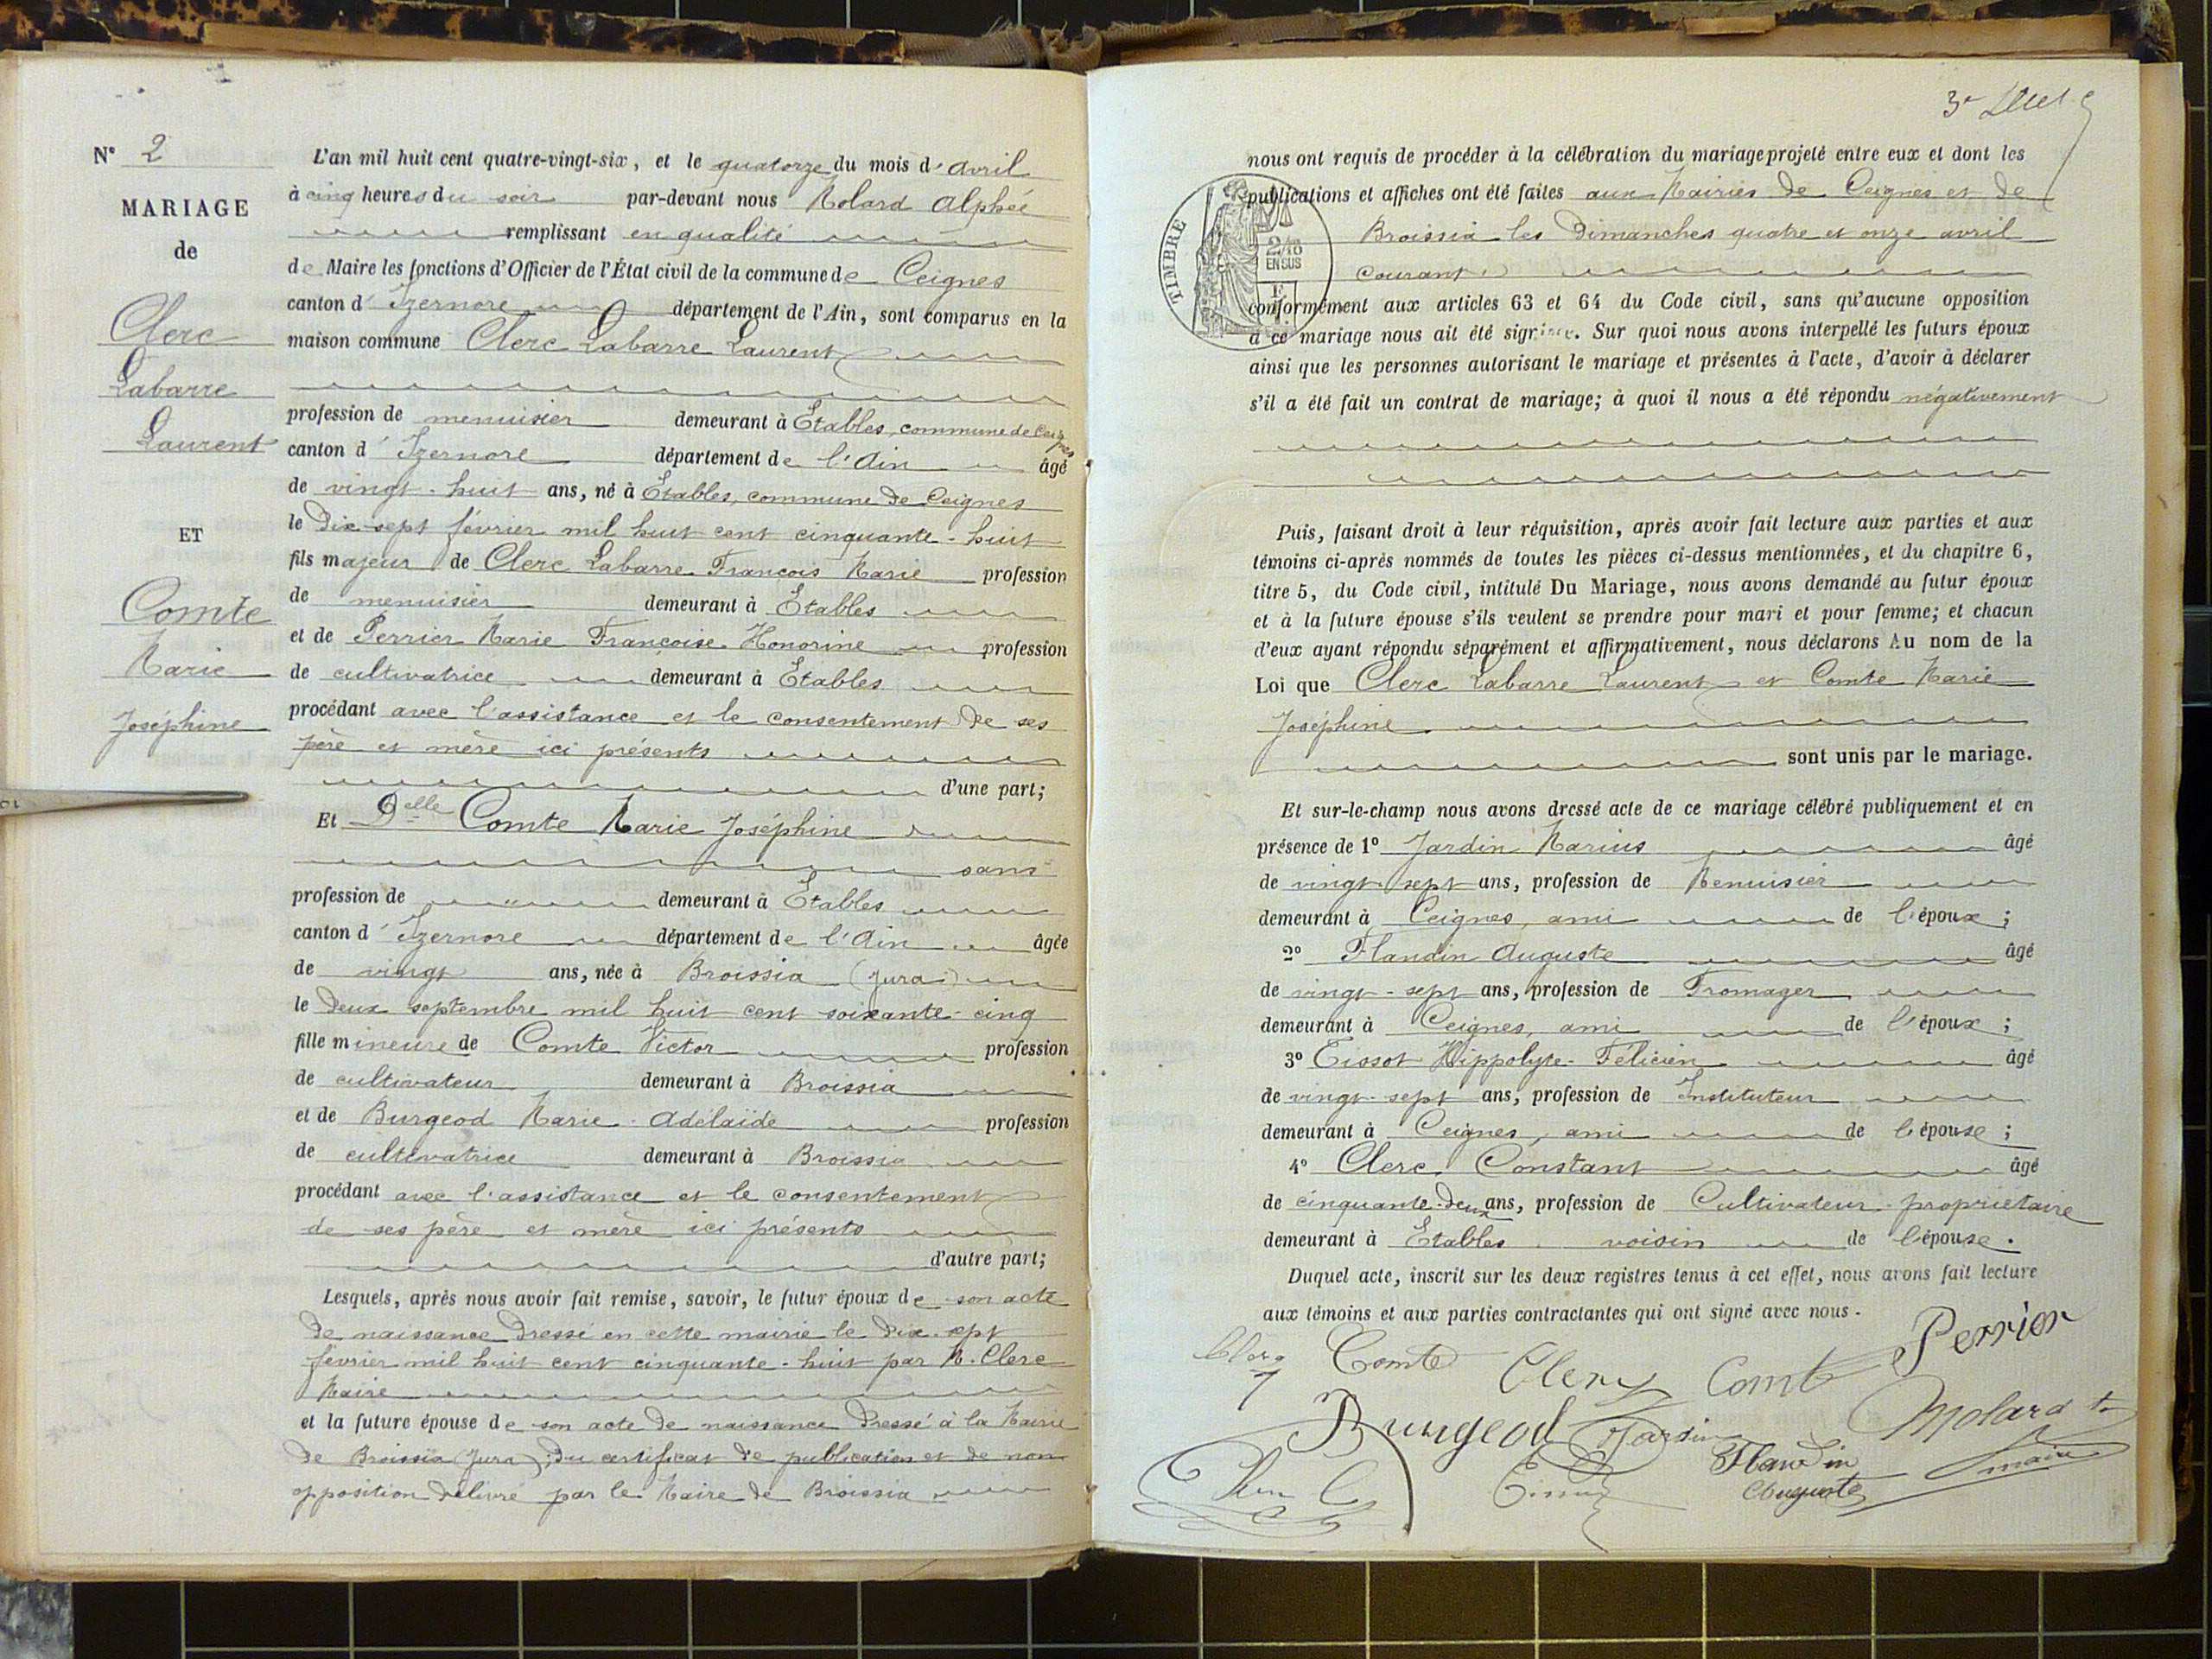 N° 2
MARIAGE
de
Clerc
Labarre
Laurent
ET
Comte
Marie
Joséphine
L'an mil huit cent quatre-vingt-six, et le quatorze du mois d'avril
à cinq heures du soir par-devant nous Molard Alphée
remplissant en qualité
de Maire les fonctions d'Officier de l'État civil de la commune de Ceignes
canton d'Izernore département de l'Ain, sont comparus en la
maison commune Clerc Labarre Laurent
profession de menuisier demeurant à Étables, commune de Ceignes
canton d'Izernore département de l'Ain âgé
de vingt-huit ans, né à Étables, commune de Ceignes
le dix-sept février mil huit cent cinquante-huit
fils majeur de Clerc Labarre François Marie profession
de menuisier demeurant à Étables
et de Perrier Marie Françoise Honorine profession
de cultivatrice demeurant à Étables
procédant avec l'assistance et le consentement de ses
père et mère ici présents
d'une part;
Et Delle Comte Marie Joséphine
sans
profession de " demeurant à Étables
canton d'Izernore département de l'Ain âgée
de vingt ans, née à Broissia (Jura)
le deux septembre mil huit cent soixante-cinq
fille mineure de Comte Victor profession
de cultivateur demeurant à Broissia
et de Burgeod Marie-Adélaïde profession
de cultivatrice demeurant à Broissia
procédant avec l'assistance et le consentement
de ses père et mère ici présents
d'autre part;
Lesquels, après nous avoir fait remise, savoir, le futur époux de son acte
de naissance dressé en cette mairie le dix-sept
février mil huit cent cinquante-huit par M. Clerc
Maire
et la future épouse de son acte de naissance dressé à la Mairie
de Broissia (Jura); du certificat de publication et de non
opposition délivré par le Maire de Broissia
nous ont requis de procéder à la célébration du mariage projeté entre eux et dont les
publications et affiches ont été faites aux Mairies de Ceignes et de
Broissia les Dimanches quatre et onze avril
courant
TIMBRE
2/10
EN SUS
conformément aux articles 63 et 64 du Code civil, sans qu'aucune opposition
à ce mariage nous ait été signifiée. Sur quoi nous avons interpellé les futurs époux
ainsi que les personnes autorisant le mariage et présentes à l'acte, d'avoir à déclarer
s'il a été fait un contrat de mariage; à quoi il nous a été répondu négativement
Puis, faisant droit à leur réquisition, après avoir fait lecture aux parties et aux
témoins ci-après nommés de toutes les pièces ci-dessus mentionnées, et du chapitre 6,
titre 5, du Code civil, intitulé Du Mariage, nous avons demandé au futur époux
et à la future épouse s'ils veulent se prendre pour mari et pour femme; et chacun
d'eux ayant répondu séparément et affirmativement, nous déclarons Au nom de la
Loi que Clerc Labarre Laurent et Comte Marie
Joséphine
sont unis par le mariage.
Et sur-le-champ nous avons dressé acte de ce mariage célébré publiquement et en
présence de 1° Jardin Marius âgé
de vingt-sept ans, profession de Menuisier
demeurant à Ceignes, ami de l'époux;
2° Flandin Auguste âgé
de vingt-sept ans, profession de Fromager
demeurant à Ceignes, ami de l'époux;
3° Tissot Hippolyte-Félicien âgé
de vingt-sept ans, profession de Instituteur
demeurant à Ceignes, ami de l'épouse;
4° Clerc Constant âgé
de cinquante-deux ans, profession de Cultivateur-propriétaire
demeurant à Étables voisin de l'épouse.
Duquel acte, inscrit sur les deux registres tenus à cet effet, nous avons fait lecture
aux témoins et aux parties contractantes qui ont signé avec nous.
Perrier
Clerc Comte Clerc Comte
Burgeod Jardin Molard
Flandin maire
Tissot Auguste